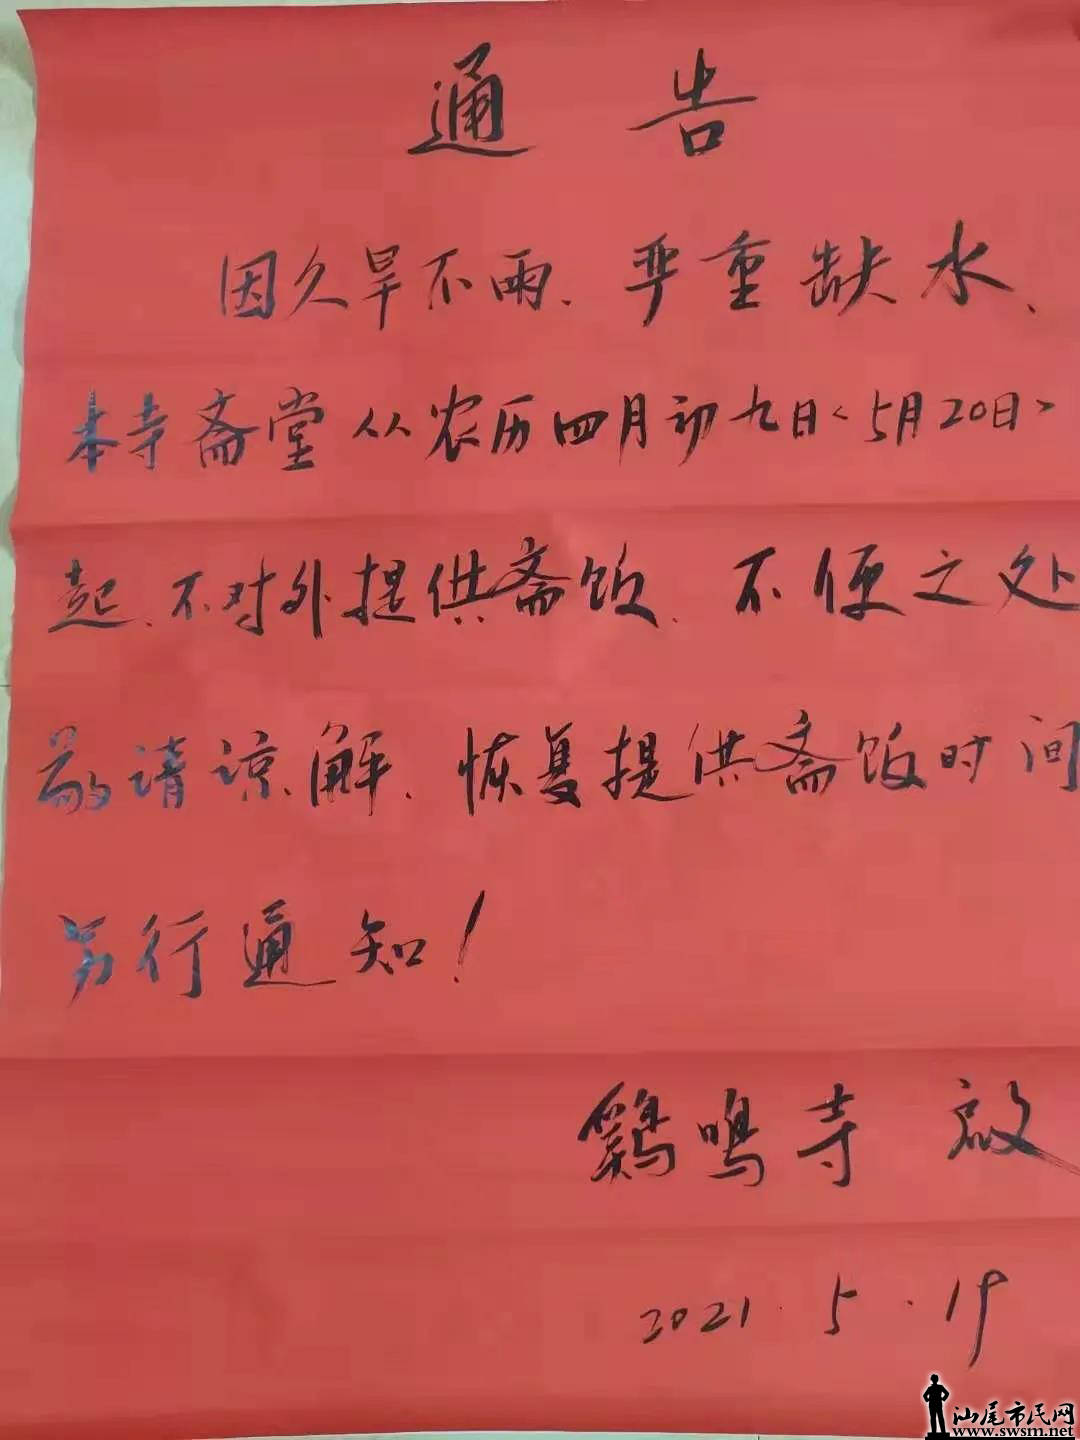 通告
因久旱不雨、严重缺水、
本寺斋堂从农历四月初九日<5月20日>
起、不对外提供斋饭、不便之处
敬请谅解、恢复提供斋饭时间
另行通知!
鷄鸣寺 啟
2021.5.19
汕尾市民网
www.swsm.net